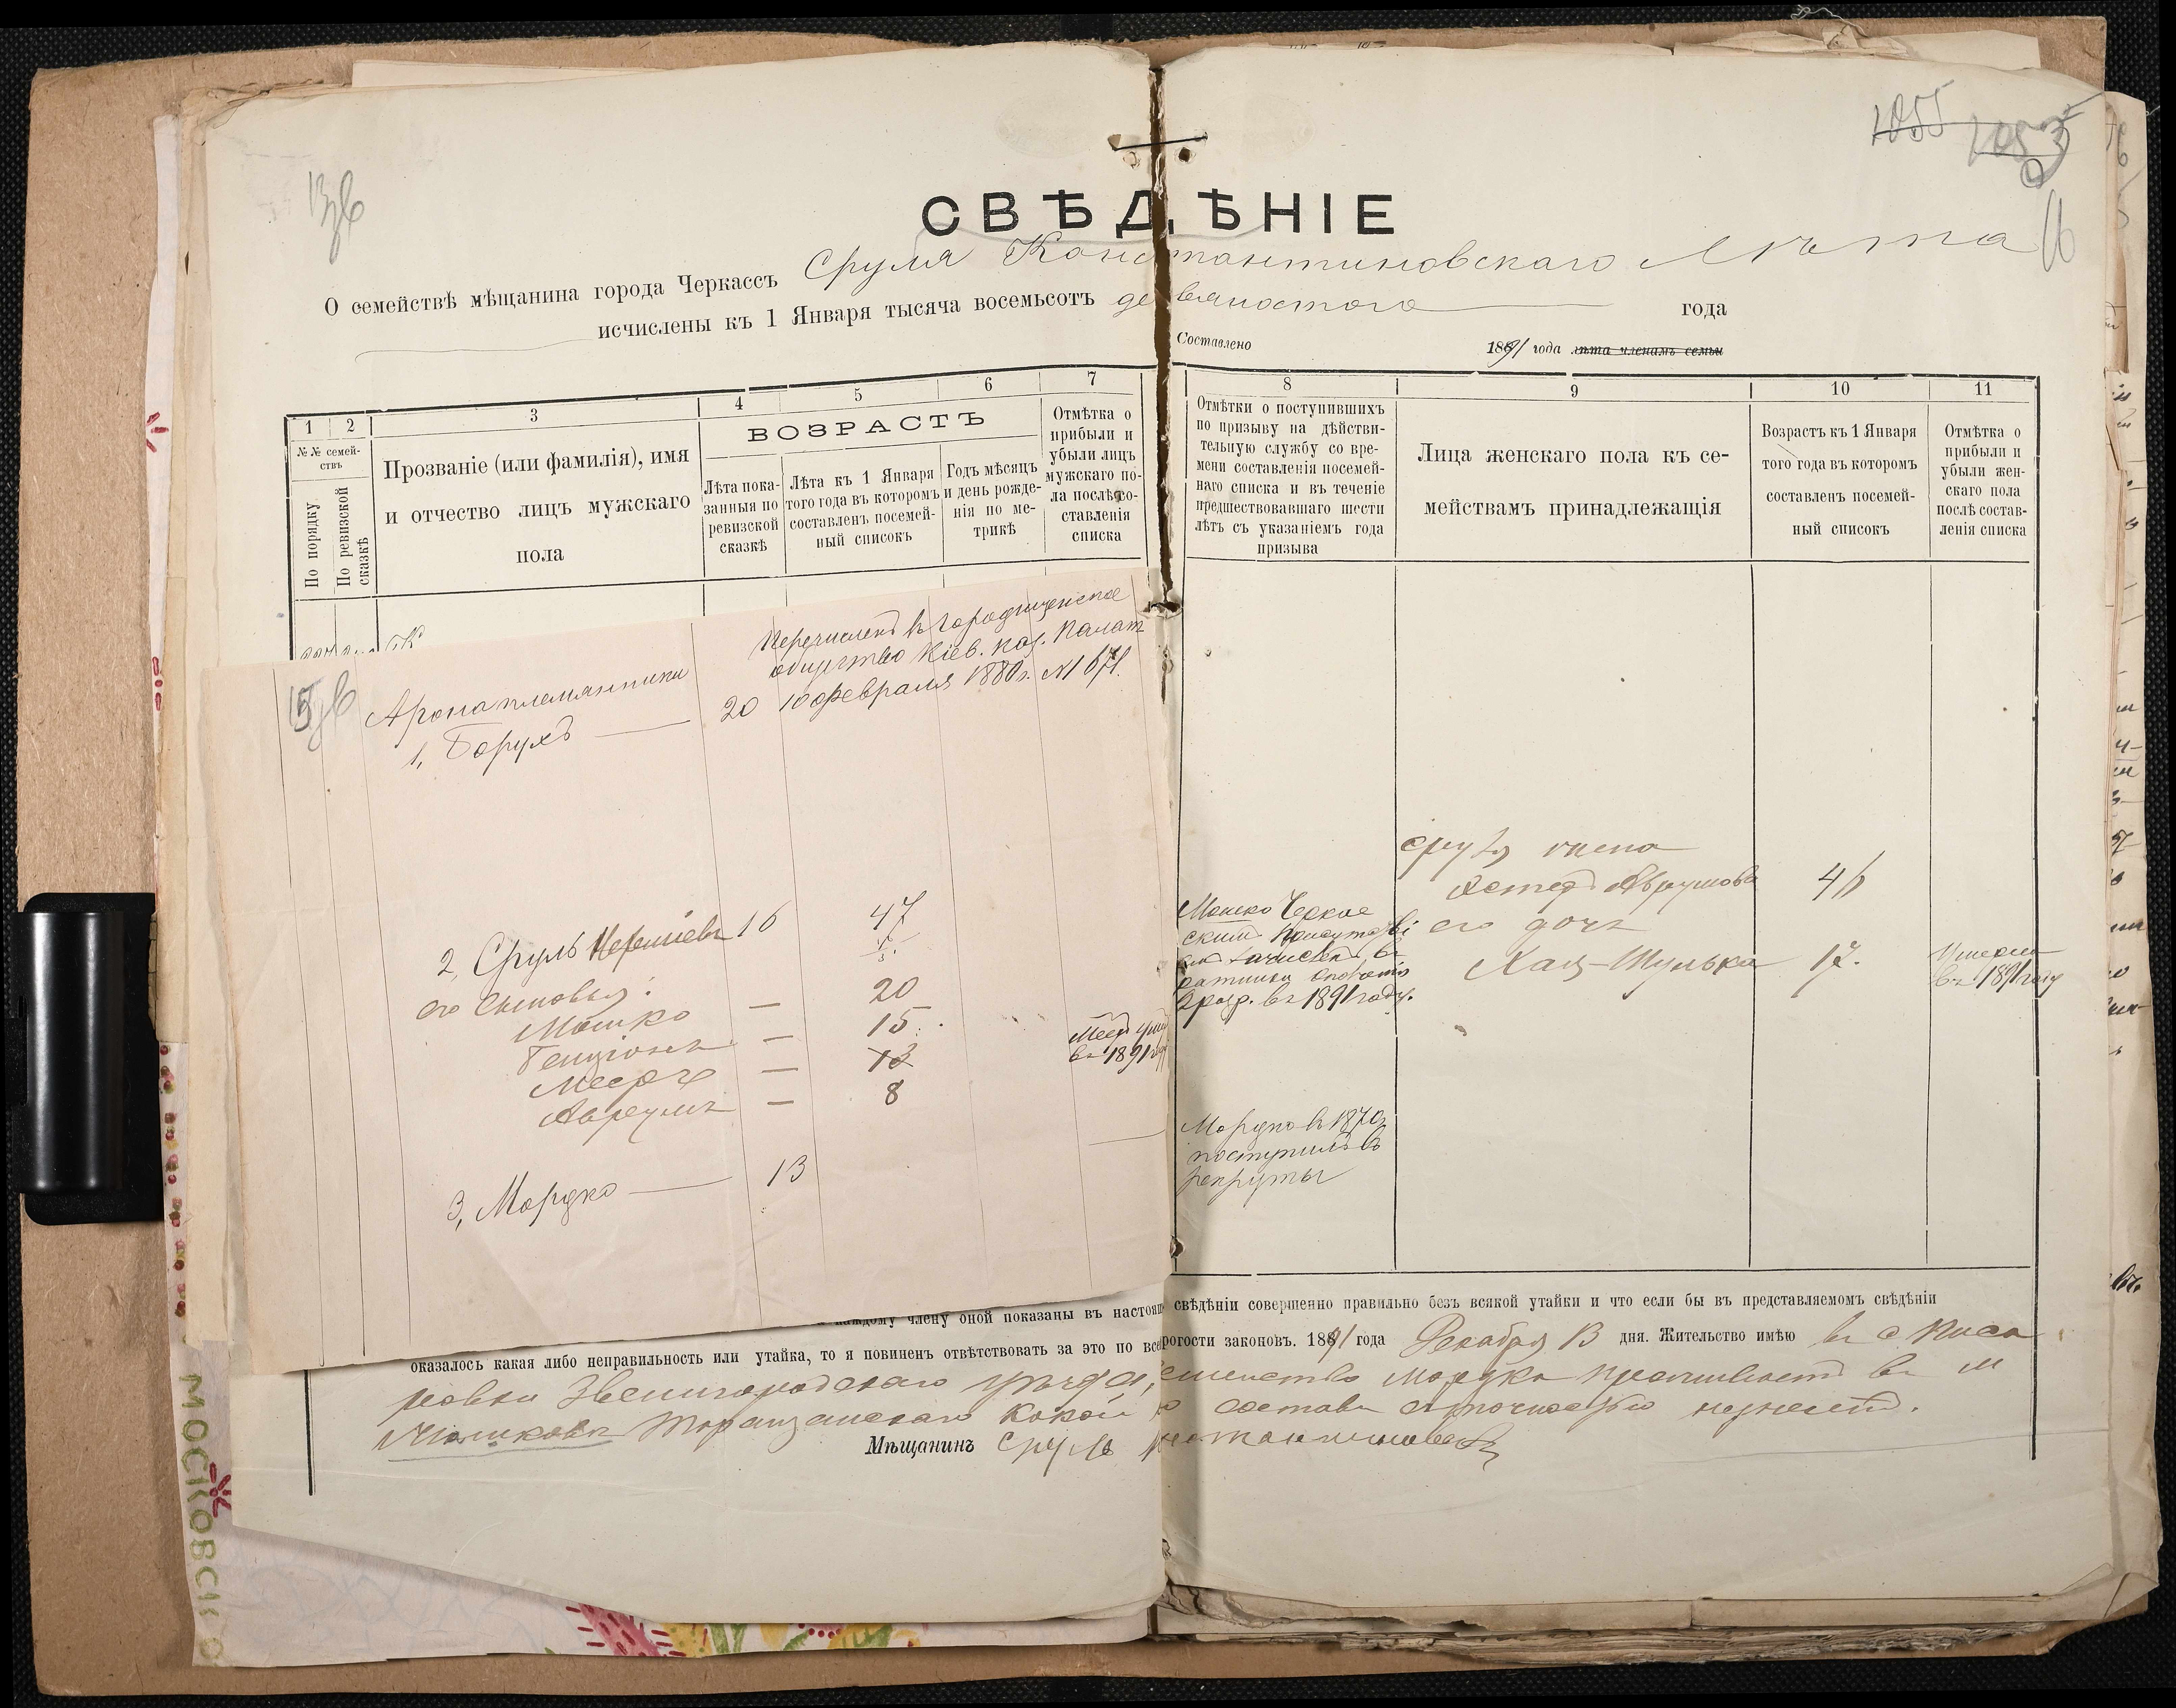 1855 1853
13/6
16
СВѢДѢНІЕ
О семействѣ мѣщанина города Черкассъ Сруля Константиновскаго Лѣта
исчислены къ 1 Января тысяча восемьсотъ девяностого года
Составлено 1891 года лѣта членамъ семьи
1 2 3 4 5 6 7 8 9 10 11
№№ семействъ
По порядку
По ревизской сказкѣ
Прозваніе (или фамилія), имя
и отчество лицъ мужскаго
пола
ВОЗРАСТЪ
Лѣта пока-
занныя по
ревизской
сказкѣ
Лѣта къ 1 Января
того года въ которомъ
составленъ посемей-
ный списокъ
Годъ мѣсяцъ
и день рожде-
нія по ме-
трикѣ
Отмѣтка о
прибыли и
убыли лицъ
мужскаго по-
ла послѣ со-
ставленія
списка
Отмѣтки о поступившихъ
по призыву на дѣйстви-
тельную службу со вре-
мени составленія посемей-
наго списка и въ теченіе
предшествовавшаго шести
лѣтъ съ указаніемъ года
призыва
Лица женскаго пола къ се-
мействамъ принадлежащія
Возрастъ къ 1 Января
того года въ которомъ
составленъ посемей-
ный списокъ
Отмѣтка о
прибыли и
убыли жен-
скаго пола
послѣ состав-
ленія списка
Перечисленъ в городищенское
общество Кіев. каз. Палат
10 февраля 1880 г. №1671.
Арона племянники
1, Борухъ — 20
2, Сруль Мершіевъ 16 47
его сыновья:
Мошко — 20
Бенціонъ — 15
Мееръ — 13
Меер умер
въ 1891 году
Аврумъ — 8
3, Мордко — 13
Мошко Черкас
ским Присутстві
ем зачислен въ
ратники ополченія
2 разр. въ 1891 году.
Мордко в 1870 г.
поступилъ въ
рекруты
Сруля жена
Естеръ Аврумова 46
его дочь
Хая-Шулька 17.
Умерла
въ 1891 году
каждому члену оной показаны въ настоящ свѣдѣніи совершенно правильно безъ всякой утайки и что если бы въ представляемомъ свѣдѣніи
оказалось какая либо неправильность или утайка, то я повиненъ отвѣтствовать за это по всей строгости законовъ. 1891 года Декабря 13 дня. Жительство имѣю въ с Писа
ревки Звенигородскаго уѣзда, семейство Мордка проживаетъ въ м
Юшковѣ Таращанскаго какой составъ
Мѣщанинъ Сруль Константиновскій
МОСКОВСК